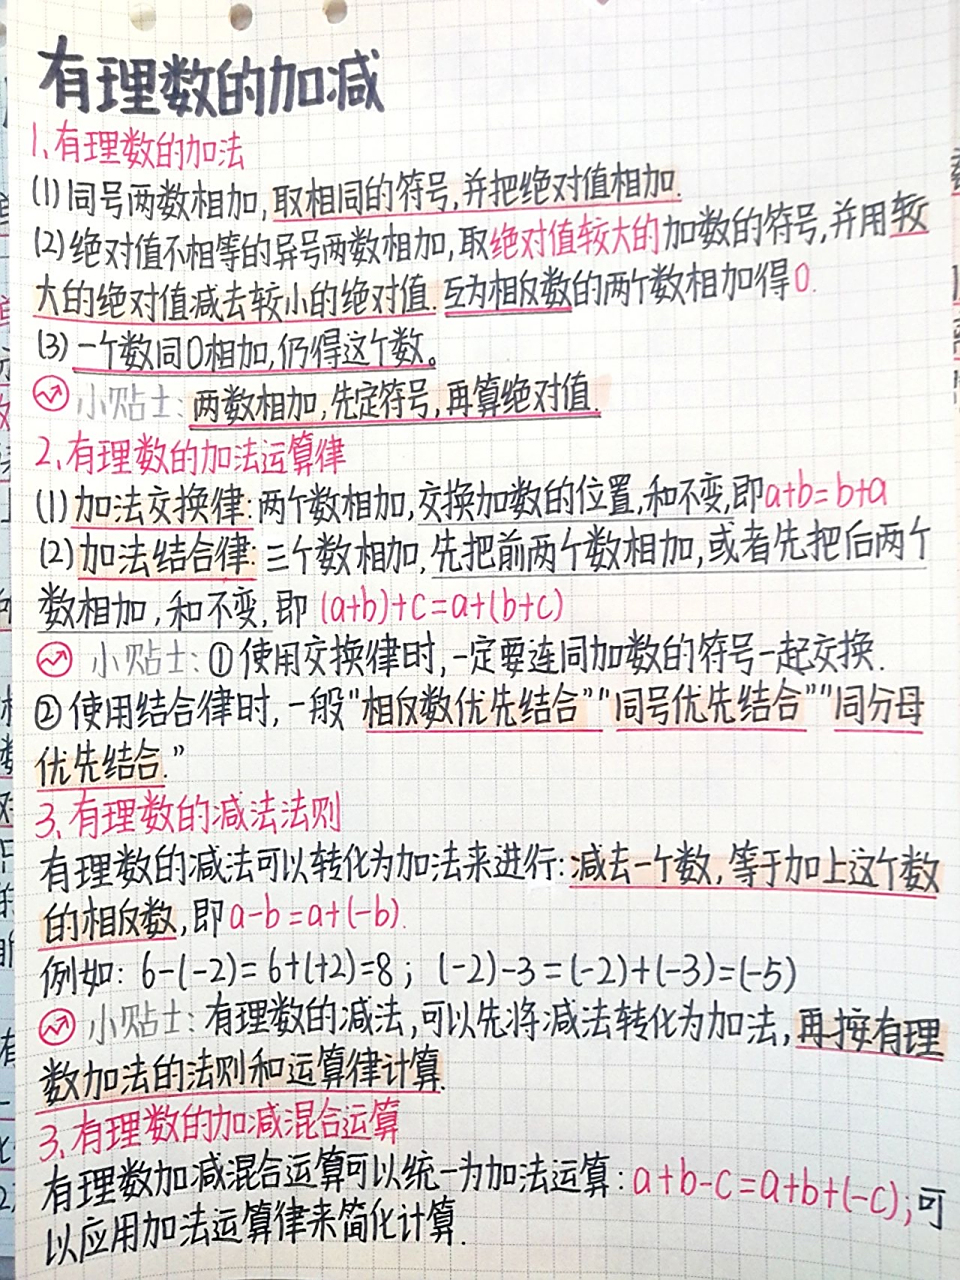 有理数的加减
1、有理数的加法
(1)同号两数相加,取相同的符号,并把绝对值相加.
(2)绝对值不相等的异号两数相加,取绝对值较大的加数的符号,并用较
大的绝对值减去较小的绝对值.互为相反数的两个数相加得0.
(3)一个数同0相加,仍得这个数。
小贴士:两数相加,先定符号,再算绝对值.
2、有理数的加法运算律
(1)加法交换律:两个数相加,交换加数的位置,和不变,即a+b=b+a
(2)加法结合律:三个数相加,先把前两个数相加,或者先把后两个
数相加,和不变,即(a+b)+c=a+(b+c)
小贴士:①使用交换律时,一定要连同加数的符号一起交换.
②使用结合律时,一般"相反数优先结合""同号优先结合""同分母
优先结合."
3、有理数的减法法则
有理数的减法可以转化为加法来进行:减去一个数,等于加上这个数
的相反数,即a-b=a+(-b).
例如:6-(-2)=6+(+2)=8;(-2)-3=(-2)+(-3)=(-5)
小贴士:有理数的减法,可以先将减法转化为加法,再按有理
数加法的法则和运算律计算.
3、有理数的加减混合运算
有理数加减混合运算可以统一为加法运算:a+b-c=a+b+(-c);可
以应用加法运算律来简化计算.